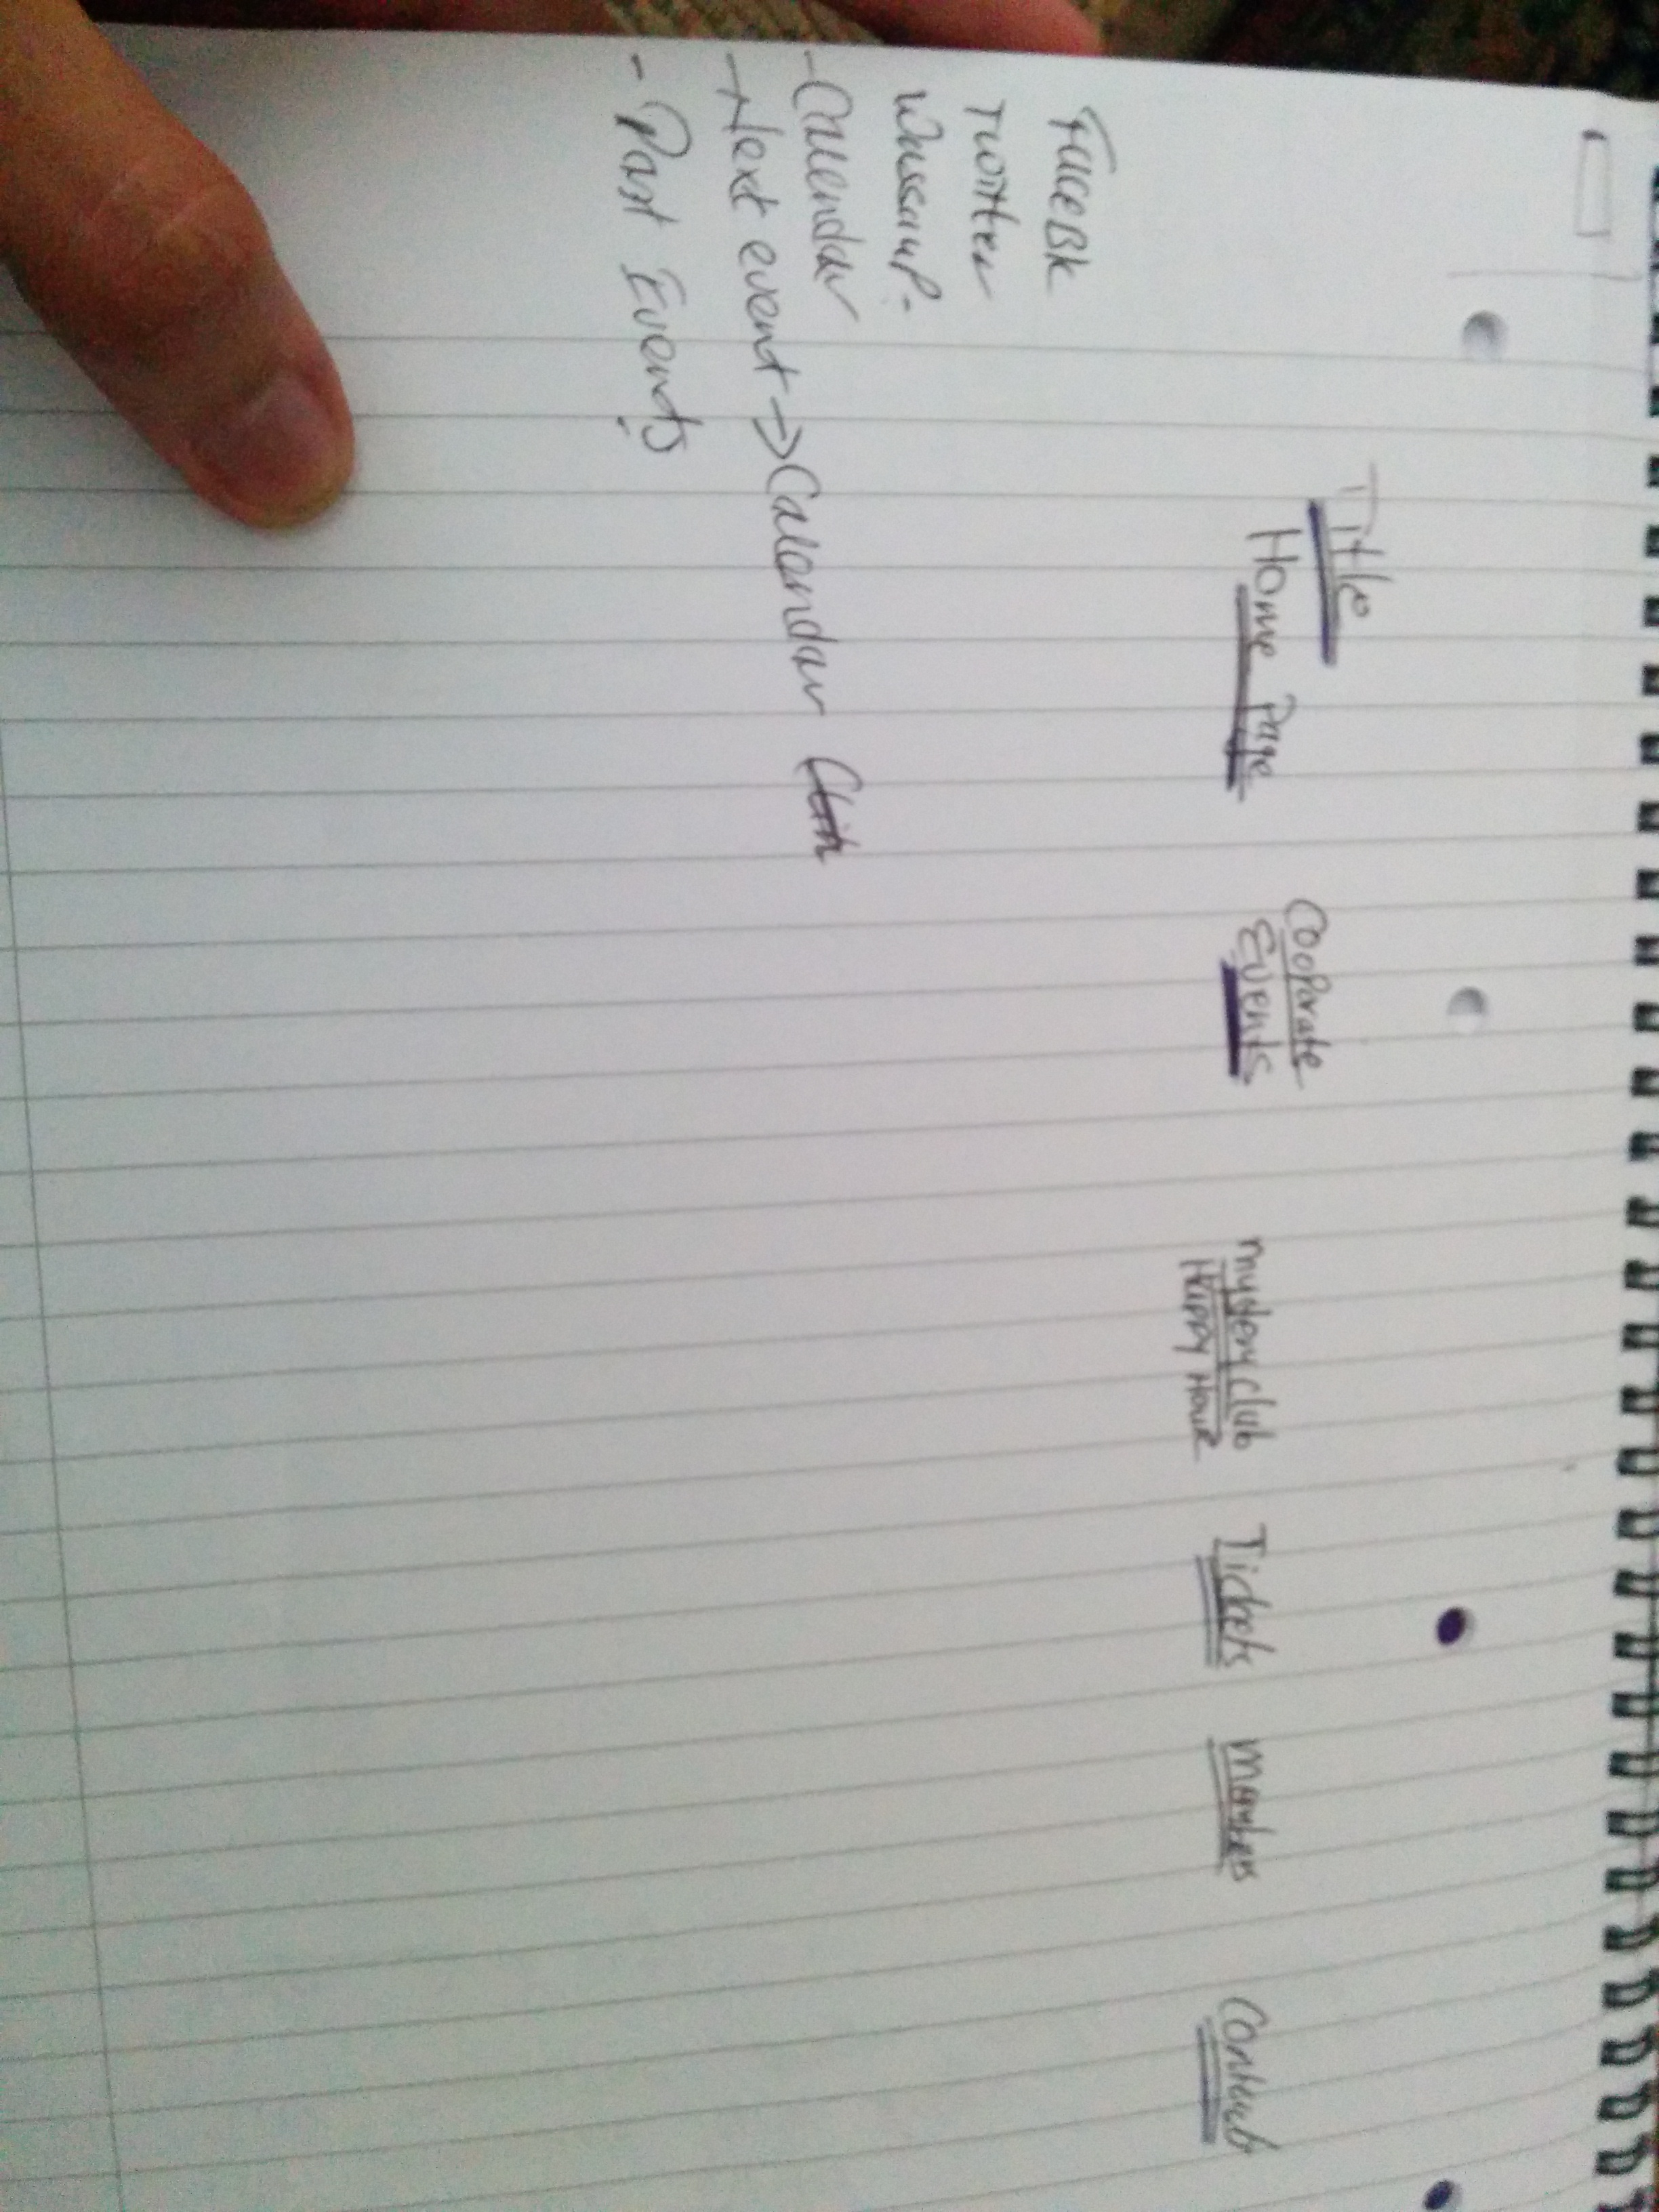 Title
Home Page
Cooparate
Events
mystery club
Happy Hour
Tickets
Members
Contacts
FaceBk
Twitter
Wassap-
- Calendar
- Next event → Calendar
- Past Events